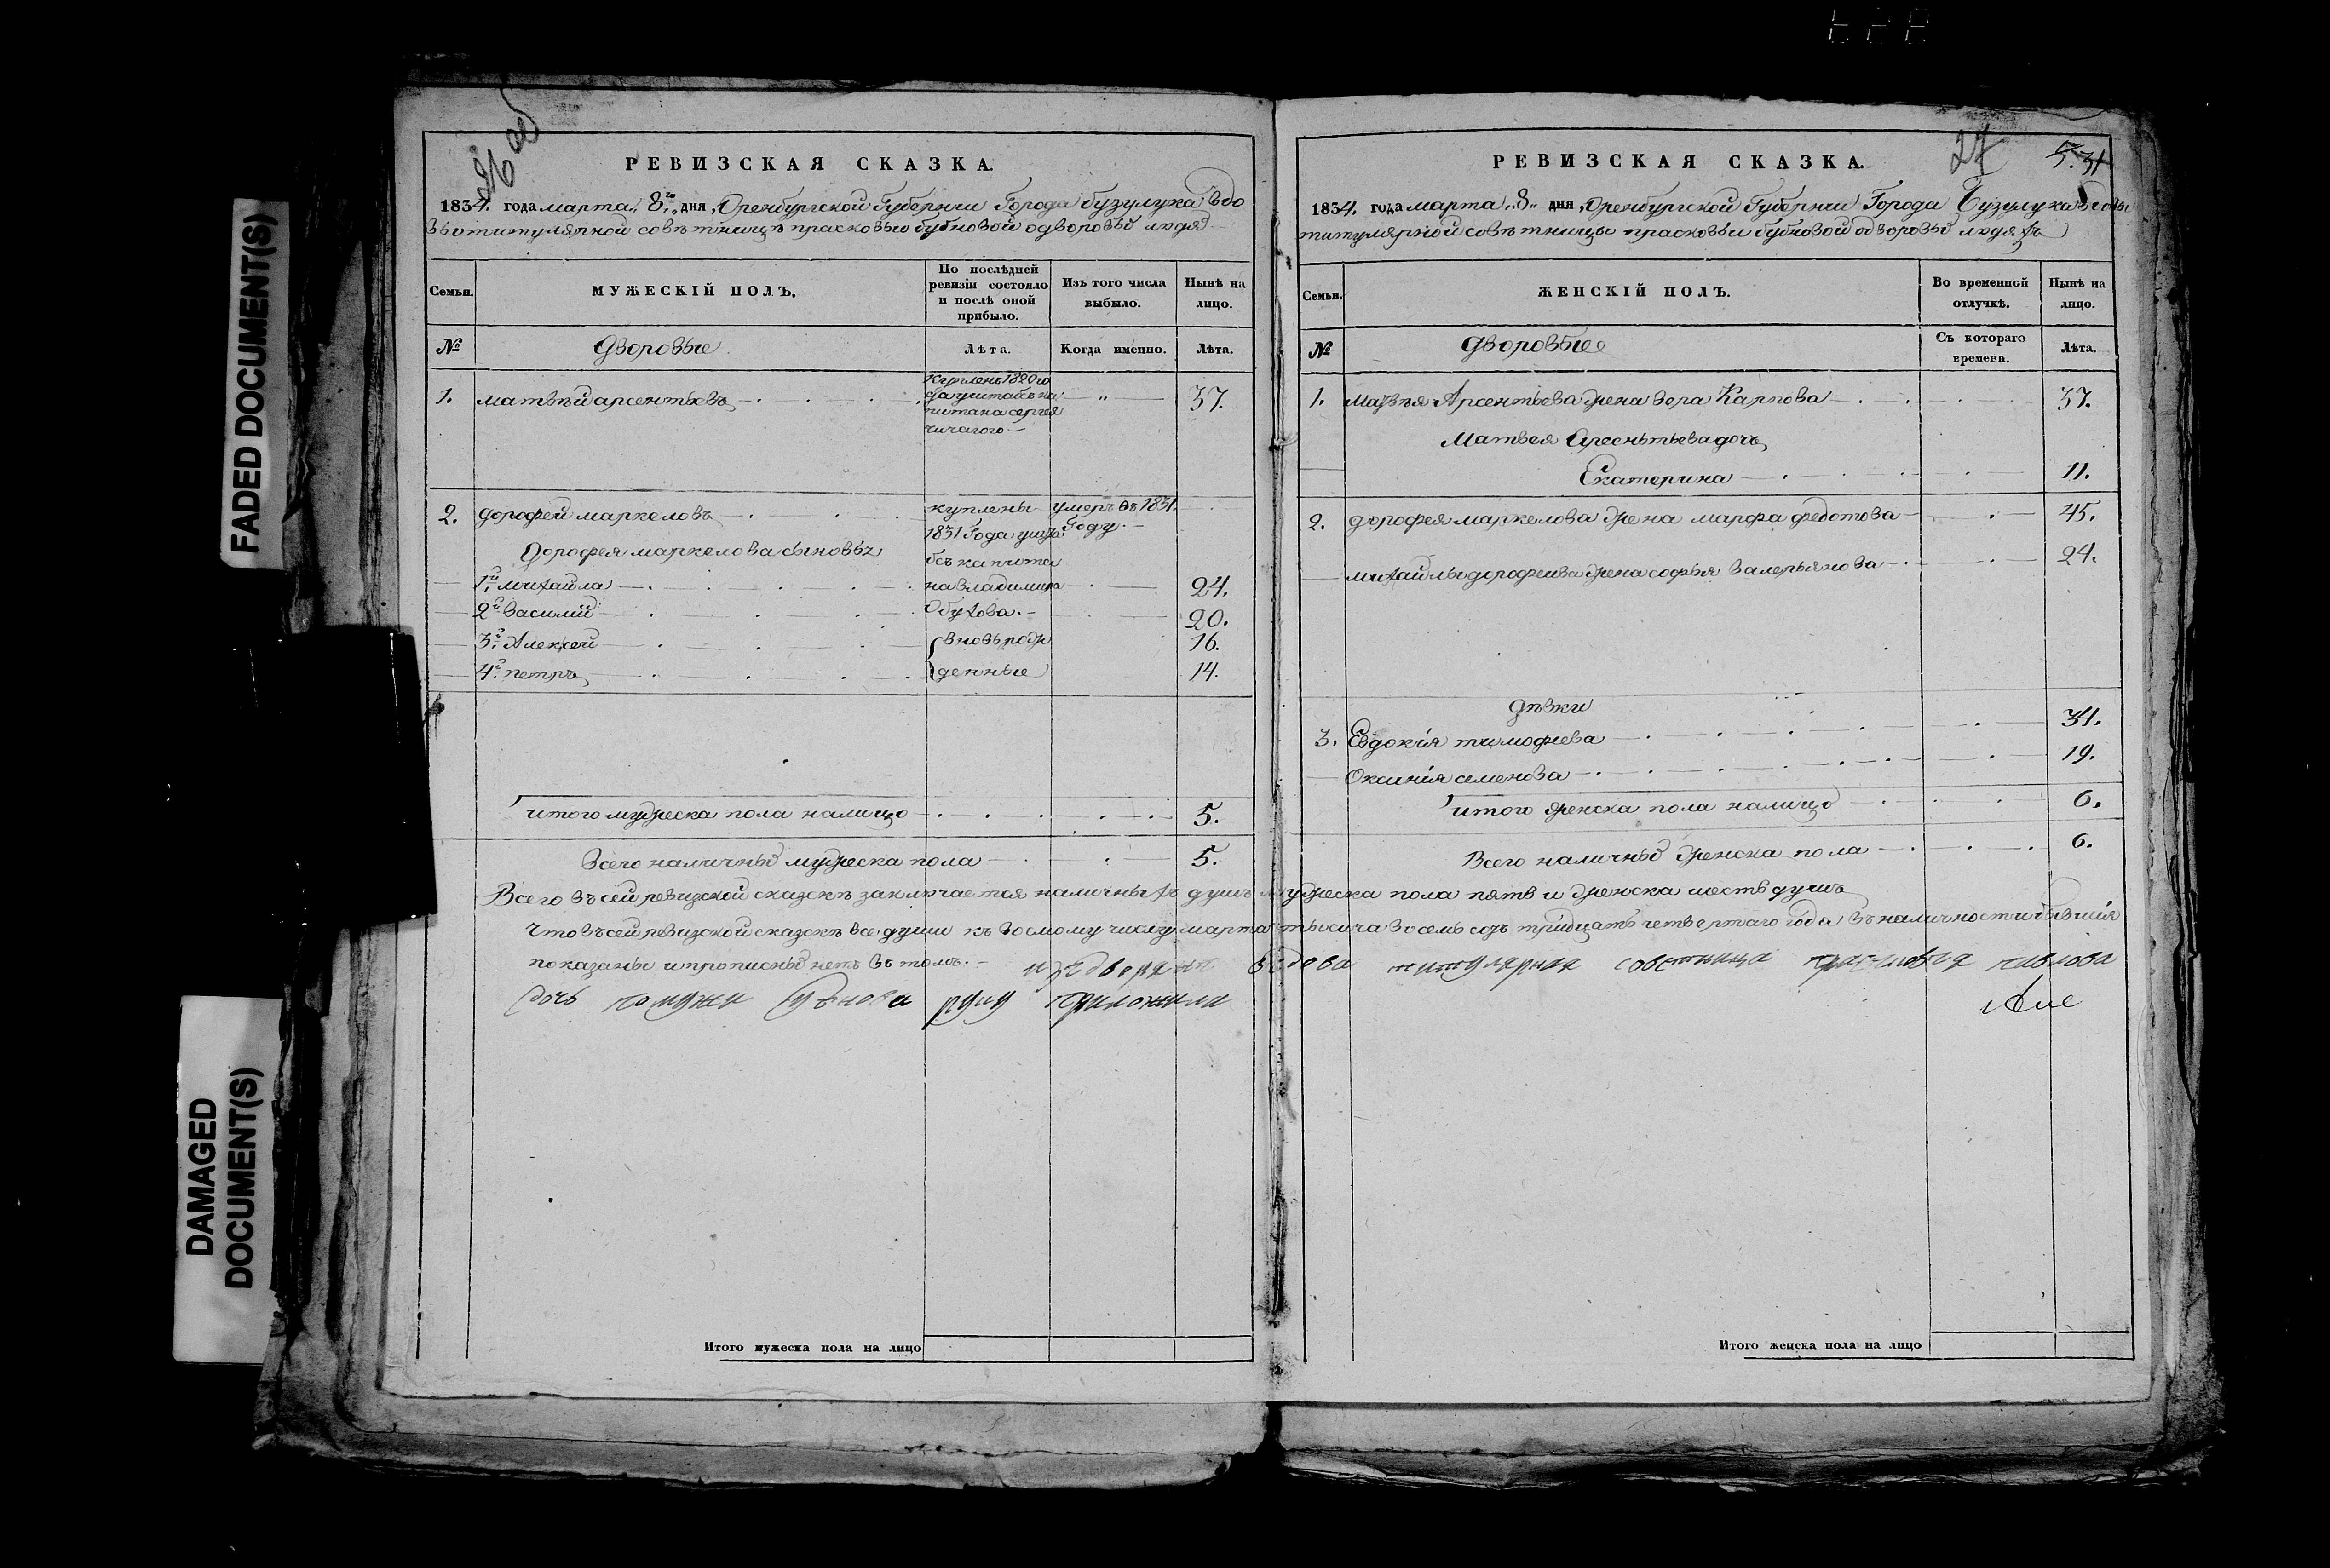 FADED DOCUMENT(S)
DAMAGED
DOCUMENT(S)
26 об
РЕВИЗСКАЯ СКАЗКА.
1834. года марта „8го„ дня, Оренбургской Губернии Города бузулука вдо
вы титулярной совѣтницѣ прасковьи бубновой одворовых людях
Семьи.
МУЖЕСКІЙ ПОЛЪ.
По послѣдней ревизіи состояло и послѣ оной прибыло.
Изъ того числа выбыло.
Нынѣ на лицо.
№
Дворовые
Лѣта.
Когда именно.
Лѣта.
1. матвѣй арсентьевъ 37.
купленъ 1820го
года у штабъ ка
питана сергея
чичагого
2. дорофей маркеловъ
куплены
умеръ въ 1831.
Году.
1831 Года у шта
Дорофея маркелова сыновья
бсъ капита
1й михайла 24.
на владимира
2й василий 20.
Обухова.
3й Алексей 16.
вновь рож
4й петръ 14.
денные
итого мужеска пола налицо 5.
Всего наличных мужеска пола 5.
Итого мужеска пола на лицо
27
5.31
РЕВИЗСКАЯ СКАЗКА.
1834. года марта „8„ дня, Оренбургской Губернии Города Бузулука вдовы
титулярной совѣтницы прасковьи бубновой одворовых людяхъ
Семьи.
ЖЕНСКІЙ ПОЛЪ.
Во временной отлучкѣ.
Нынѣ на лицо.
№
Дворовые
Съ котораго времени.
Лѣта.
1. Матвѣя Арсентьева жена вера Карпова 37.
Матвея Арсеньтьева дочь
Екатерина 11.
2. дорофея маркелова жена марфа федотова 45.
михайлы дорофеива жена софья валерьянова 24.
Дѣвки
3. Евдокія тимофиева 31.
Оксинія семенова 19.
итого женска пола налицо 6.
Всего наличных женска пола 6.
Итого женска пола на лицо
Всего въ сей ревизской сказскѣ заключается наличныхъ душъ мужеска пола пять и женска шесть душъ
Что въ сей ревизской сказскѣ все души къ восмому числу марта тысяча восемь сотъ тридцать четвертаго года въ наличности бывшія
показаны и прописных нетъ въ томъ. изъ дворянъ вдова титулярная советница прасковья павлова
дочь по мужи Бубнова руку приложила